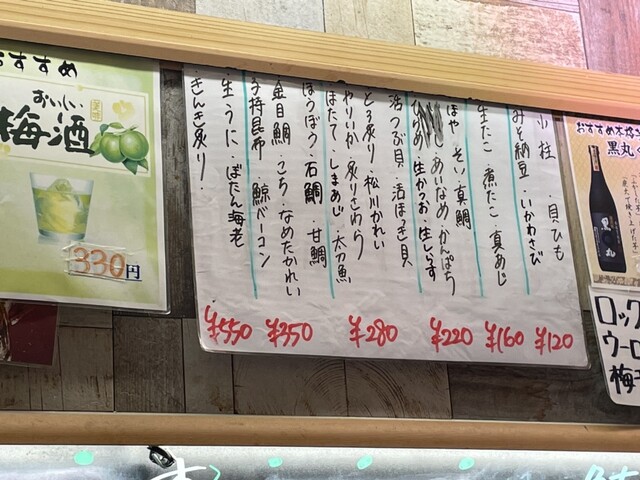 小柱・貝ひも
みそ納豆・いかわさび
¥120
生たこ・煮たこ・真あじ
¥160
ほや・そい・真鯛
あいなめ・かんぱち
生かつお・生しらす
¥220
活つぶ貝 活ほっき貝
とろ炙り・松川かれい
やりいか・炙りさわら
ほたて・しまあじ・太刀魚
ほうぼう・石鯛・甘鯛
¥280
金目鯛・こち・なめたかれい
子持昆布・鯨ベーコン
¥350
生うに・ぼたん海老
きんき炙り
¥550
おすすめ
おいしい
梅酒
330円
おすすめ本格
黒丸
黒丸
ロック
ウーロ
梅